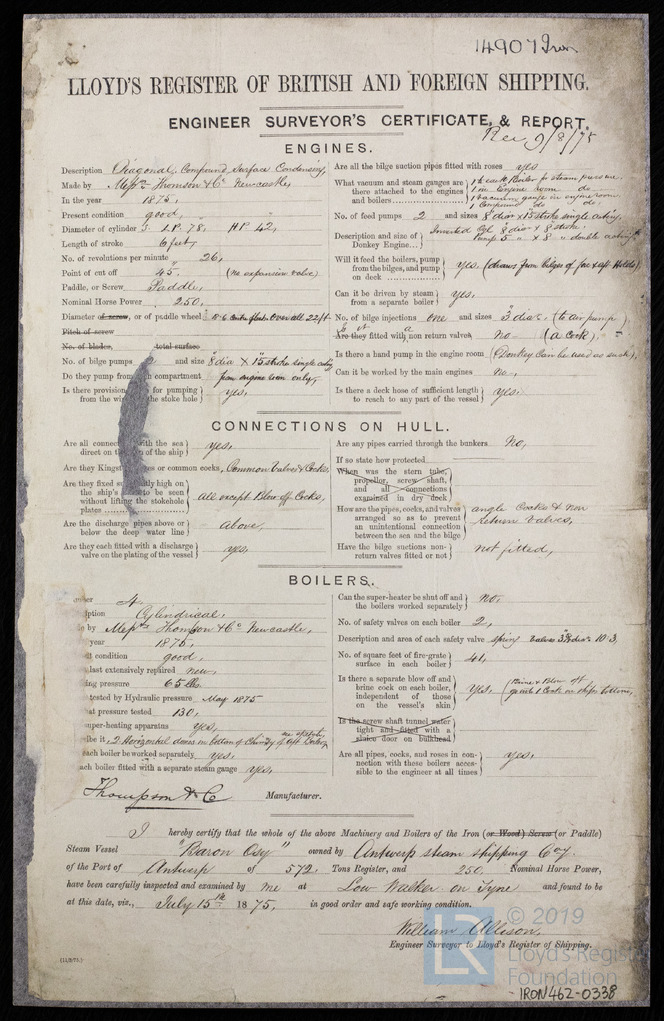 14907 Iron
LLOYD'S REGISTER OF BRITISH AND FOREIGN SHIPPING.
ENGINEER SURVEYOR'S CERTIFICATE, & REPORT.
Rec 9/8/75
ENGINES.
Description Diagonal, Compound, Surface Condensing,
Made by Messrs Thomson & Co Newcastle,
In the year 1875,
Present condition good,
Diameter of cylinders L.P. 78, H.P. 42,
Length of stroke 6 feet,
No. of revolutions per minute 26,
Point of cut off 45. (no expansion valve)
Paddle, or Screw Paddle,
Nominal Horse Power 250,
Diameter of screw, or of paddle wheel over all 22ft
Pitch of screw
No. of blades, total surface
No. of bilge pumps and size 8 dia X 15 stroke single acting
Do they pump from compartment from engine room only,
Is there provision for pumping
from the stoke hole yes,
Are all the bilge suction pipes fitted with roses yes
What vacuum and steam gauges are
there attached to the engines
and boilers
1 to each Boiler for steam pressure.
1 in Engine room do.
1 vacuum gauge in engine room
1 Compound do do.
No. of feed pumps 2 and sizes 8 dia x 15 stroke single acting.
Description and size of
Donkey Engine...
Inverted Cyl 8 dia x 8 stroke.
Pump 5 " x 8 " double acting
Will it feed the boilers, pump
from the bilges, and pump
on deck
yes, (draws from bilges of fore & aft Holds)
Can it be driven by steam
from a separate boiler yes,
No. of bilge injections one and sizes 3 dia. (to air pump)
Is it fitted with a non return valves no (a cock).
Is there a hand pump in the engine room (Donkey Can be used as such),
Can it be worked by the main engines no,
Is there a deck hose of sufficient length
to reach to any part of the vessel yes.
CONNECTIONS ON HULL.
Are all connec with the sea
direct on of the ship yes,
Are they Kings or common cocks, Common Valves & Cocks,
Are they fixed high on
the ship's to be seen
without lifting the stokehole
plates
all except Blow off Cocks,
Are the discharge pipes above or
below the deep water line above,
Are they each fitted with a discharge
valve on the plating of the vessel yes,
Are any pipes carried through the bunkers No,
If so state how protected
When was the stern tube,
propeller, screw shaft,
and all connections
examined in dry dock
How are the pipes, cocks, and valves
arranged so as to prevent
an unintentional connection
between the sea and the bilge
angle Cocks & non
return valves,
Have the bilge suctions non-
return valves fitted or not not fitted,
BOILERS.
mber 4.
iption Cylindrical,
e by Messrs Thomson & Co Newcastle,
year 1875,
t condition good,
last extensively repaired new,
ing pressure 65 lbs.
tested by Hydraulic pressure May 1875
at pressure tested 130,
uper-heating apparatus yes,
be it, 2 Horizontal domes in bottom of Chimney
ach boiler be worked separately yes,
ach boiler fitted with a separate steam gauge yes,
Can the super-heater be shut off and
the boilers worked separately no,
No. of safety valves on each boiler 2,
Description and area of each safety valve spring valves 3 5/8 dia. 10.3.
No. of square feet of fire-grate
surface in each boiler 41,
Is there a separate blow off and
brine cock on each boiler,
independent of those
on the vessel's skin
yes, (Brine & Blow off
1 Cock on ships bottom,
Is the screw shaft tunnel water
tight and fitted with a
sluice door on bulkhead
Are all pipes, cocks, and roses in con-
nection with these boilers acces-
sible to the engineer at all times yes,
Thompson & Co Manufacturer.
I hereby certify that the whole of the above Machinery and Boilers of the Iron (or Wood) Screw (or Paddle)
Steam Vessel "Baron Osy" owned by Antwerp steam shipping Coy.
of the Port of Antwerp of 572, Tons Register, and 250, Nominal Horse Power,
have been carefully inspected and examined by me at Low Walker on Tyne and found to be
at this date, viz., July 15th 1875, in good order and safe working condition.
William Allison,
Engineer Surveyor to Lloyd's Register of Shipping.
LR
© 2019
Lloyd's Regist
Foundation
IRON462-0338